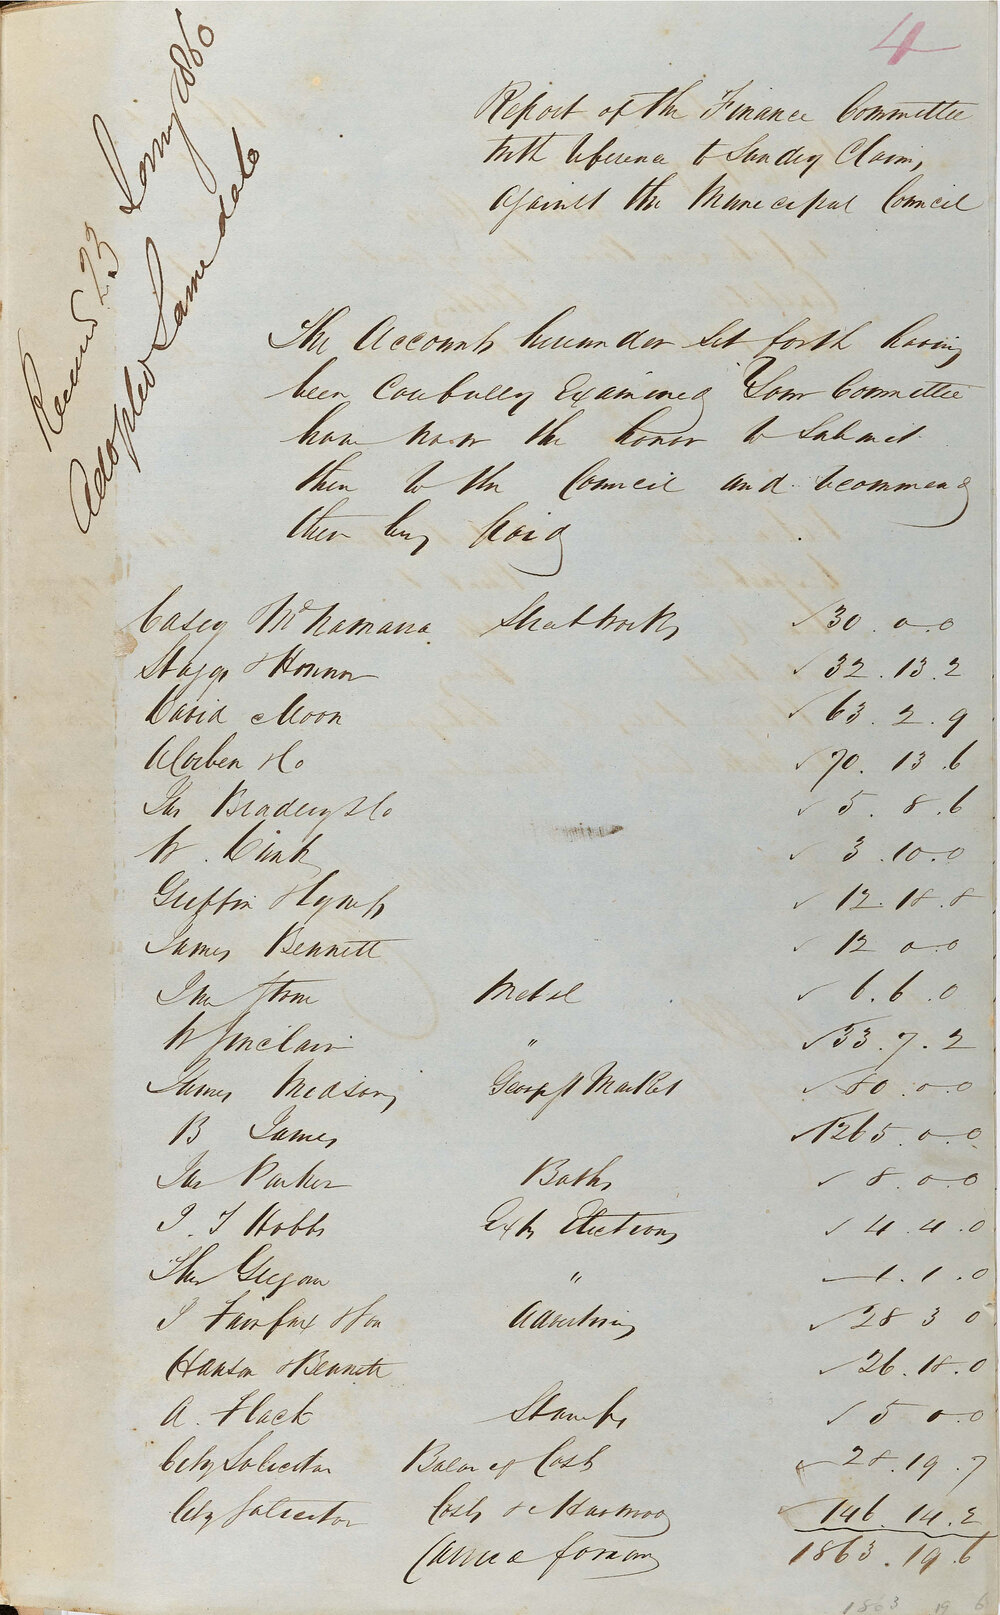 4
Received 23 January 1860
Adopted Same date
Report of the Finance Committee
with reference to Sundry Claims
against the Municipal Council
The Accounts hereunder set forth having
been Carefully Examined Your Committee
have now the honor to Submit
them to the Council and recommend
their being paid
Casey McNamara Streetworks 30.0.0
Staggs & Honnor 32.13.2
David Moon 63.2.9
& Co 70.13.6
Thos Bradley & Co 5.8.6
W. 3.10.0
Griffin & Lynch 12.18.8
James Bennett 12 0.0
Jno Stone Metal 6.6.0
W Sinclair " 33.7.2
James Georges St Market 80.0.0
B James 1265.0.0
Jas Parker Baths 8.0.0
J. T Hobbs Exp Elections 4.4.0
Thos " 1.1.0
J Fairfax & Son Advertising 28 3 0
Hanson & Bennett 26.18.0
A. Flack Stamps 5 0.0
City Solicitor Balance of Costs 28.19.7
City Solicitor Costs 146.14.2
Carried forward 1863.19.6
1863 19 6